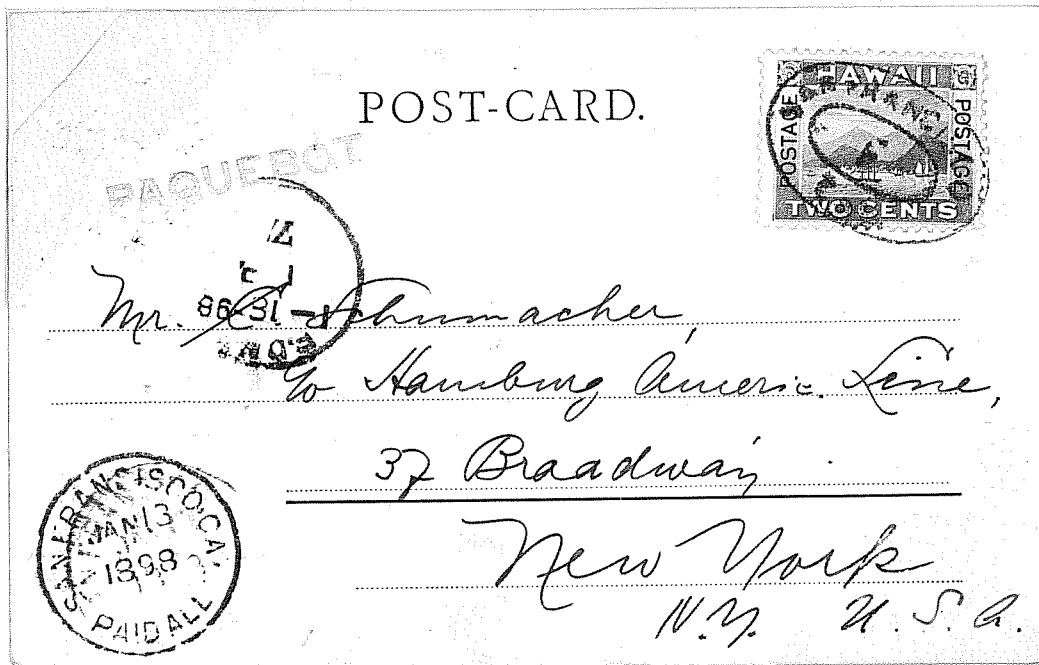 HAWAII
POSTAGE
POSTAGE
TWO CENTS
SAN FRANCI
POST-CARD.
PAQUEBOT
Mr. Schumacher,
c/o Hamburg Americ. Line,
37 Broadway
New York
N.Y. U. S. A.
SAN FRANCISCO, CAL
JAN 13
1898
PAID ALL